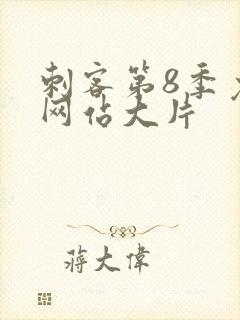 刺客第8季
网佔大片
蒋大偉